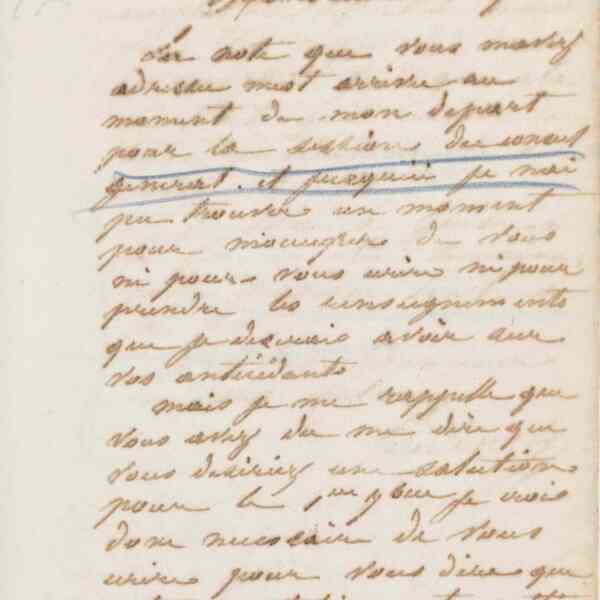 La note que vous mavez
adressee mest arrivee au
moment de mon depart
pour la session du conseil
general. et jusquici je nai
pu trouver un moment
pour moccuper de vous
ni pour vous ecrire ni pour
prendre les renseignements
que je desirais avoir sur
vos antécédants
mais je me rappelle que
vous avez du me dire que
vous desiriez une solution
pour le 1er 9bre je crois
donc necessaire de vous
ecrire pour vous dire que